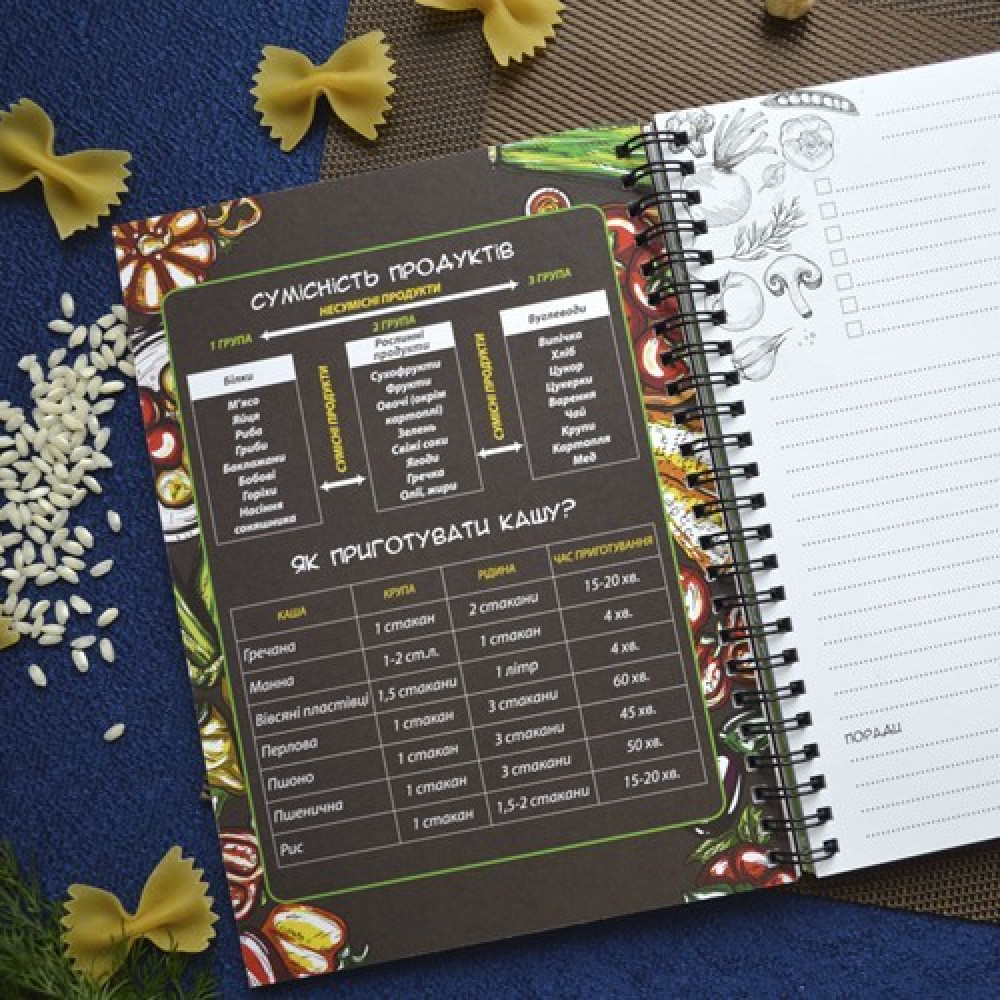 СУМІСНІСТЬ ПРОДУКТІВ
НЕСУМІСНІ ПРОДУКТИ
1 ГРУПА
2 ГРУПА
3 ГРУПА
Білки
М'ясо
Яйця
Риба
Гриби
Баклажани
Бобові
Горіхи
Насіння
соняшника
СУМІСНІ ПРОДУКТИ
Рослинні
продукти
Сухофрукти
Фрукти
Овочі (окрім
картоплі)
Зелень
Свіжі соки
Ягоди
Гречка
Олії, жири
СУМІСНІ ПРОДУКТИ
Вуглеводи
Випічка
Хліб
Цукор
Цукерки
Варення
Чай
Крупи
Картопля
Мед
ЯК ПРИГОТУВАТИ КАШУ?
КАША КРУПА РІДИНА ЧАС ПРИГОТУВАННЯ
Гречана 1 стакан 2 стакани 15-20 хв.
Манна 1-2 ст.л. 1 стакан 4 хв.
Вівсяні пластівці 1,5 стакани 1 літр 4 хв.
Перлова 1 стакан 3 стакани 60 хв.
Пшоно 1 стакан 3 стакани 45 хв.
Пшенична 1 стакан 3 стакани 50 хв.
Рис 1 стакан 1,5-2 стакани 15-20 хв.
ПОРАДИ